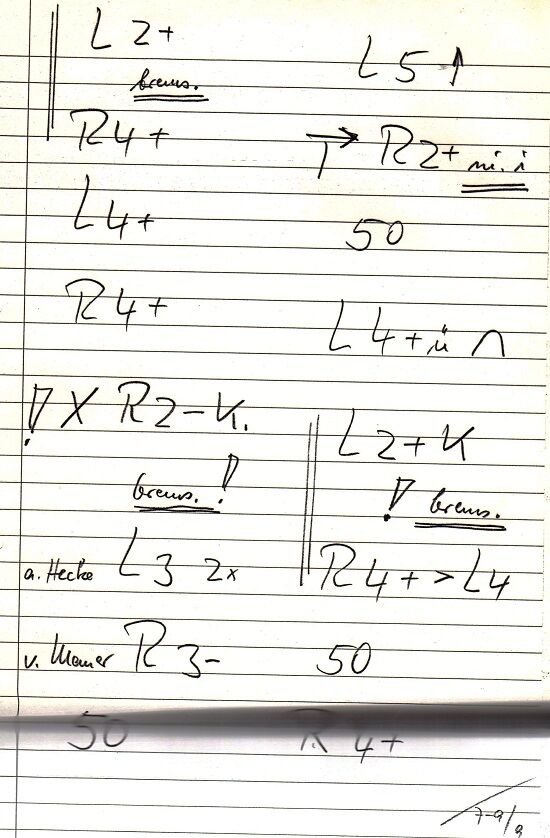 L 2+
brems.
R 4+
L 4+
R 4+
! X R 2- K.
brems. !
a. Hecke L 3 2x
v. Mauer R 3-
50
L 5 ↑
→ R 2+ ni. i
50
L 4+ ü ∩
L 2+ K
! brems.
R 4+ > L 4
50
R 4+